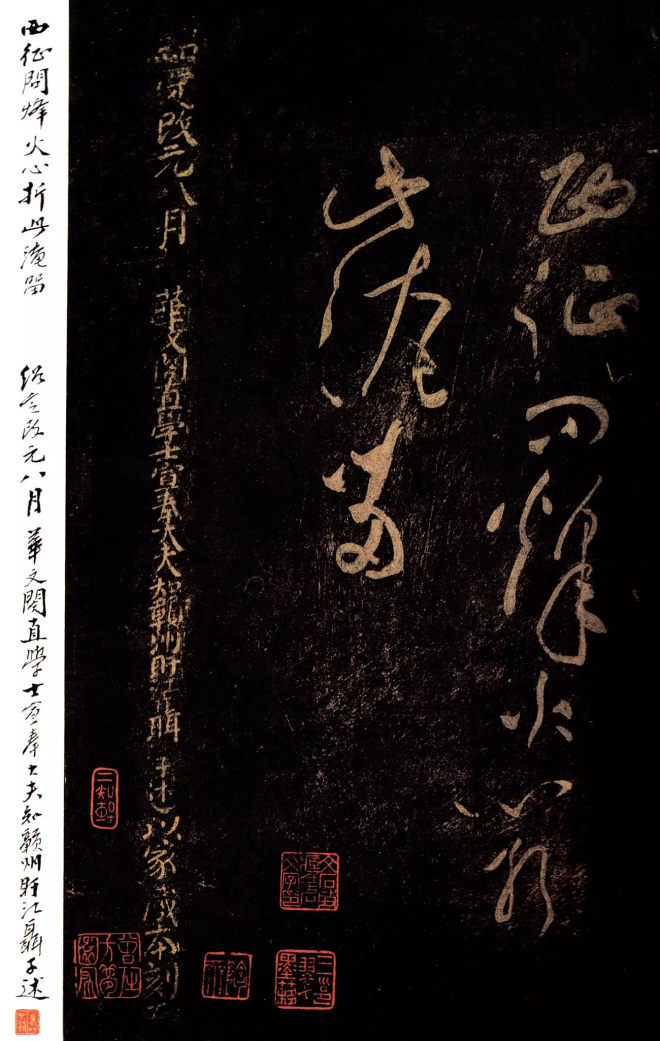 西征问烽火心折
此淹留
绍定改元八月 華文閣直學士宣奉大夫知贛州盱江聶子述以家藏本刻
西征問烽火心折此淹留
绍定改元八月華文閣直學士宣奉大夫知贛州盱江聶子述